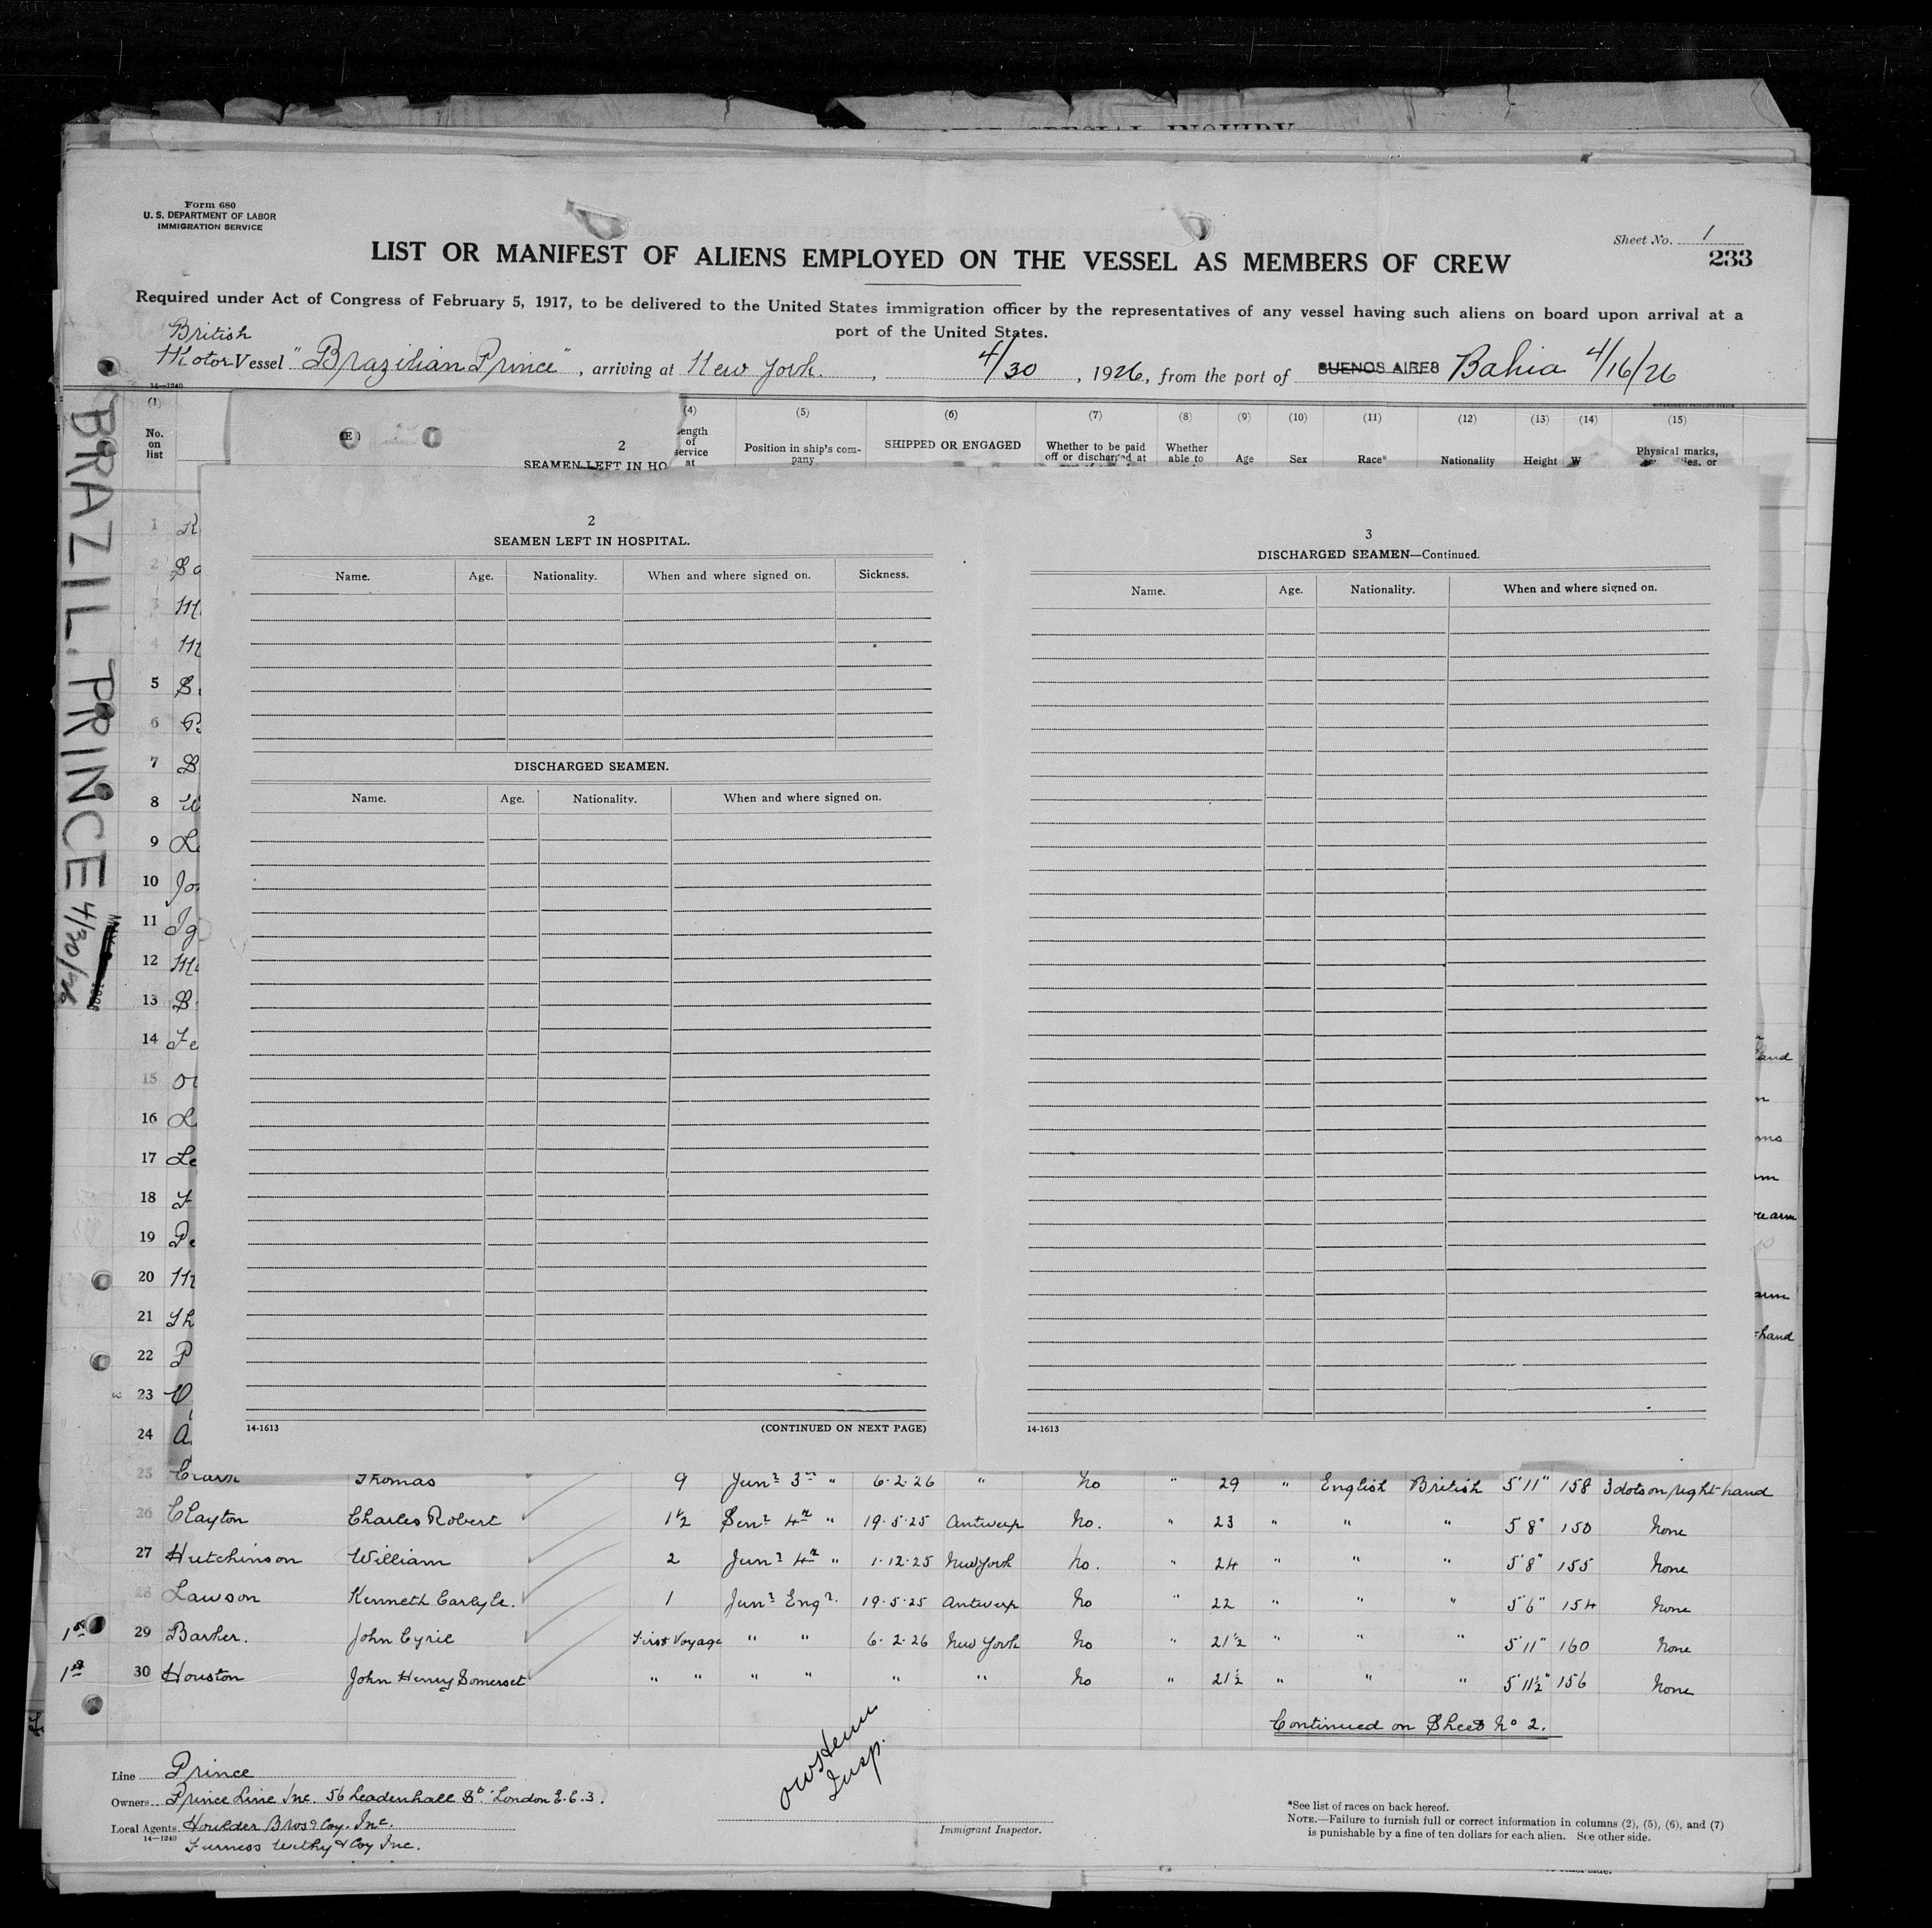 SPECIAL INQUIRY
Form 680
U. S. DEPARTMENT OF LABOR
IMMIGRATION SERVICE
Sheet No. 1
233
LIST OR MANIFEST OF ALIENS EMPLOYED ON THE VESSEL AS MEMBERS OF CREW
Required under Act of Congress of February 5, 1917, to be delivered to the United States immigration officer by the representatives of any vessel having such aliens on board upon arrival at a
port of the United States.
British
Motor Vessel "Brazilian Prince", arriving at New York, 4/30, 1926, from the port of BUENOS AIRES Bahia 4/16/26
14-1240
BRAZIL. PRINCE 4/30/26
(1) (4) (5) (6) (7) (8) (9) (10) (11) (12) (13) (14) (15)
No. on list
Position in ship's company
SHIPPED OR ENGAGED
Whether to be paid off or discharged at
Whether able to
Age
Sex
Race*
Nationality
Height
Physical marks,
(E)
2
SEAMEN LEFT IN HO
2
SEAMEN LEFT IN HOSPITAL.
Name. Age. Nationality. When and where signed on. Sickness.
DISCHARGED SEAMEN.
Name. Age. Nationality. When and where signed on.
14-1613
(CONTINUED ON NEXT PAGE)
3
DISCHARGED SEAMEN—Continued.
Name. Age. Nationality. When and where signed on.
14-1613
1
2
3
4
5
6
7
8
9
10
11
12
13
14
15
16
17
18
19
20
21
22
23
24
25 Clark Thomas 9 Junr 3rd " 6.2.26 " No " 29 " English British 5'11" 158 3 dots on right hand
26 Clayton Charles Robert 1½ Senr 4th " 19.5.25 Antwerp No. " 23 " " " 5'8" 150 None
27 Hutchinson William 2 Junr 4th " 1.12.25 New York No. " 24 " " " 5'8" 155 None
28 Lawson Kenneth Carlyle. 1 Junr Engr. 19.5.25 Antwerp No " 22 " " " 5'6" 154 None
1st 29 Barker. John Cyril First Voyage " " 6.2.26 New York No " 21½ " " " 5'11" 160 None
1st 30 Houston John Henry Somerset " " " " " " No " 21½ " " " 5'11½" 156 None
Continued on Sheet No 2.
Insp.
Line Prince
Owners Prince Line Inc. 56 Leadenhall St. London E.C.3.
Local Agents Houlder Bros & Coy. Inc.
14-1240
Furness Withy & Coy Inc.
Immigrant Inspector.
*See list of races on back hereof.
NOTE.—Failure to furnish full or correct information in columns (2), (5), (6), and (7)
is punishable by a fine of ten dollars for each alien. See other side.